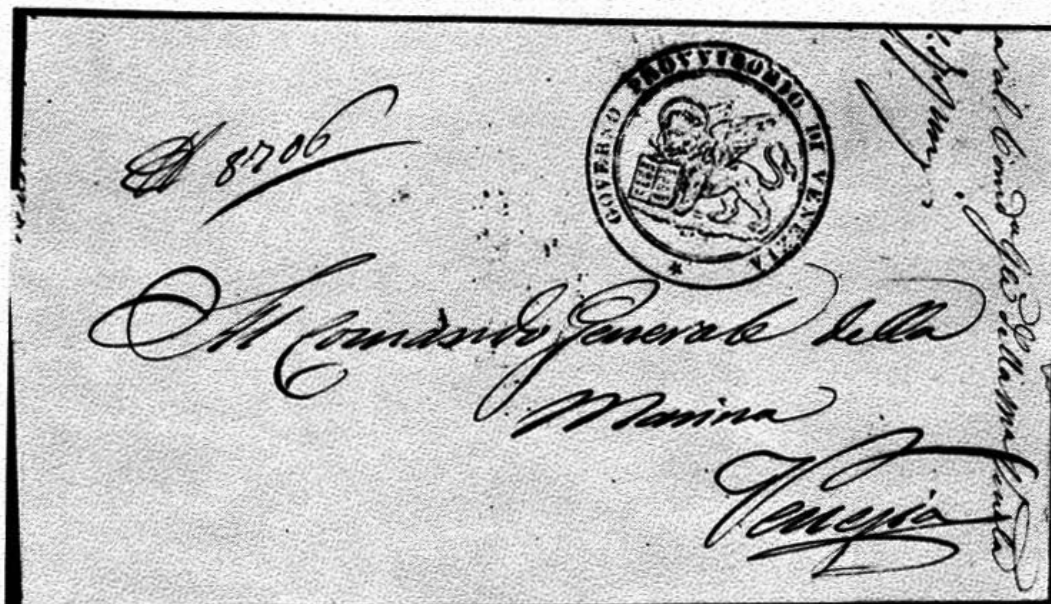 N 8706
GOVERNO PROVVISORIO DI VENEZIA
Al Comando Generale della
Marina
Venezia